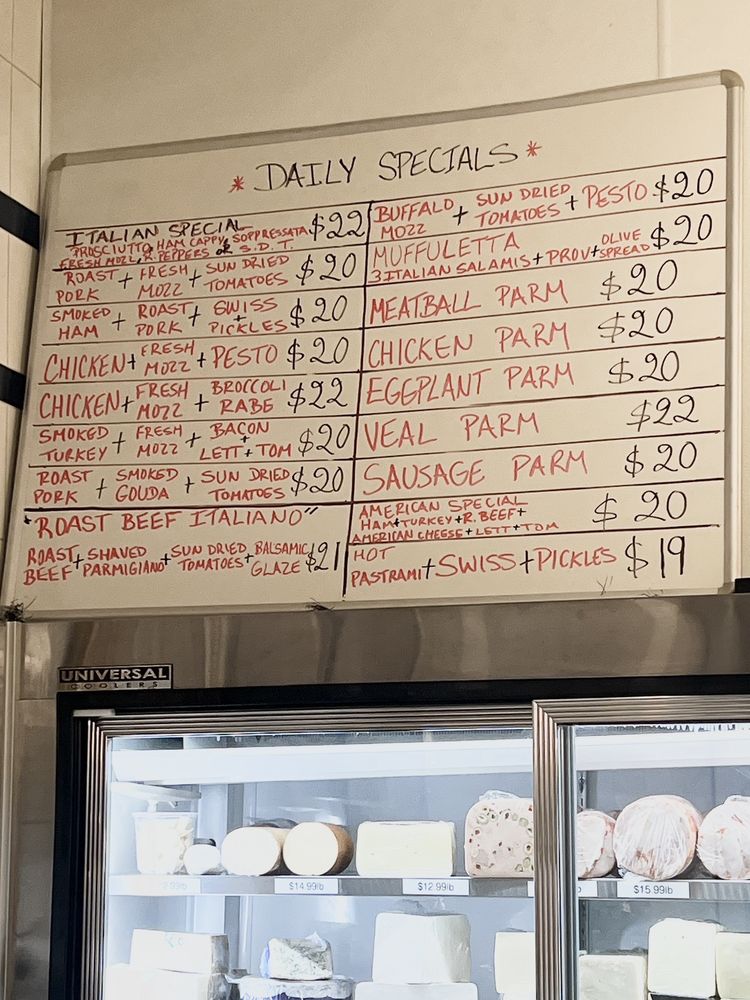 * DAILY SPECIALS *
ITALIAN SPECIAL $22
PROSCIUTTO, HAM CAPPY, SOPPRESSATA
FRESH MOZZ, R. PEPPERS OR S.D.T.
ROAST PORK + FRESH MOZZ + SUN DRIED TOMATOES $20
SMOKED HAM + ROAST PORK + SWISS + PICKLES $20
CHICKEN + FRESH MOZZ + PESTO $20
CHICKEN + FRESH MOZZ + BROCCOLI RABE $22
SMOKED TURKEY + FRESH MOZZ + BACON + LETT + TOM $20
ROAST PORK + SMOKED GOUDA + SUN DRIED TOMATOES $20
"ROAST BEEF ITALIANO"
ROAST BEEF + SHAVED PARMIGIANO + SUN DRIED TOMATOES + BALSAMIC GLAZE $21
BUFFALO MOZZ + SUN DRIED TOMATOES + PESTO $20
MUFFULETTA
3 ITALIAN SALAMIS + PROV + OLIVE SPREAD $20
MEATBALL PARM $20
CHICKEN PARM $20
EGGPLANT PARM $20
VEAL PARM $22
SAUSAGE PARM $20
AMERICAN SPECIAL $20
HAM + TURKEY + R. BEEF +
AMERICAN CHEESE + LETT + TOM
HOT PASTRAMI + SWISS + PICKLES $19
UNIVERSAL
COOLERS
$14.99lb
$12.99lb
$15.99lb